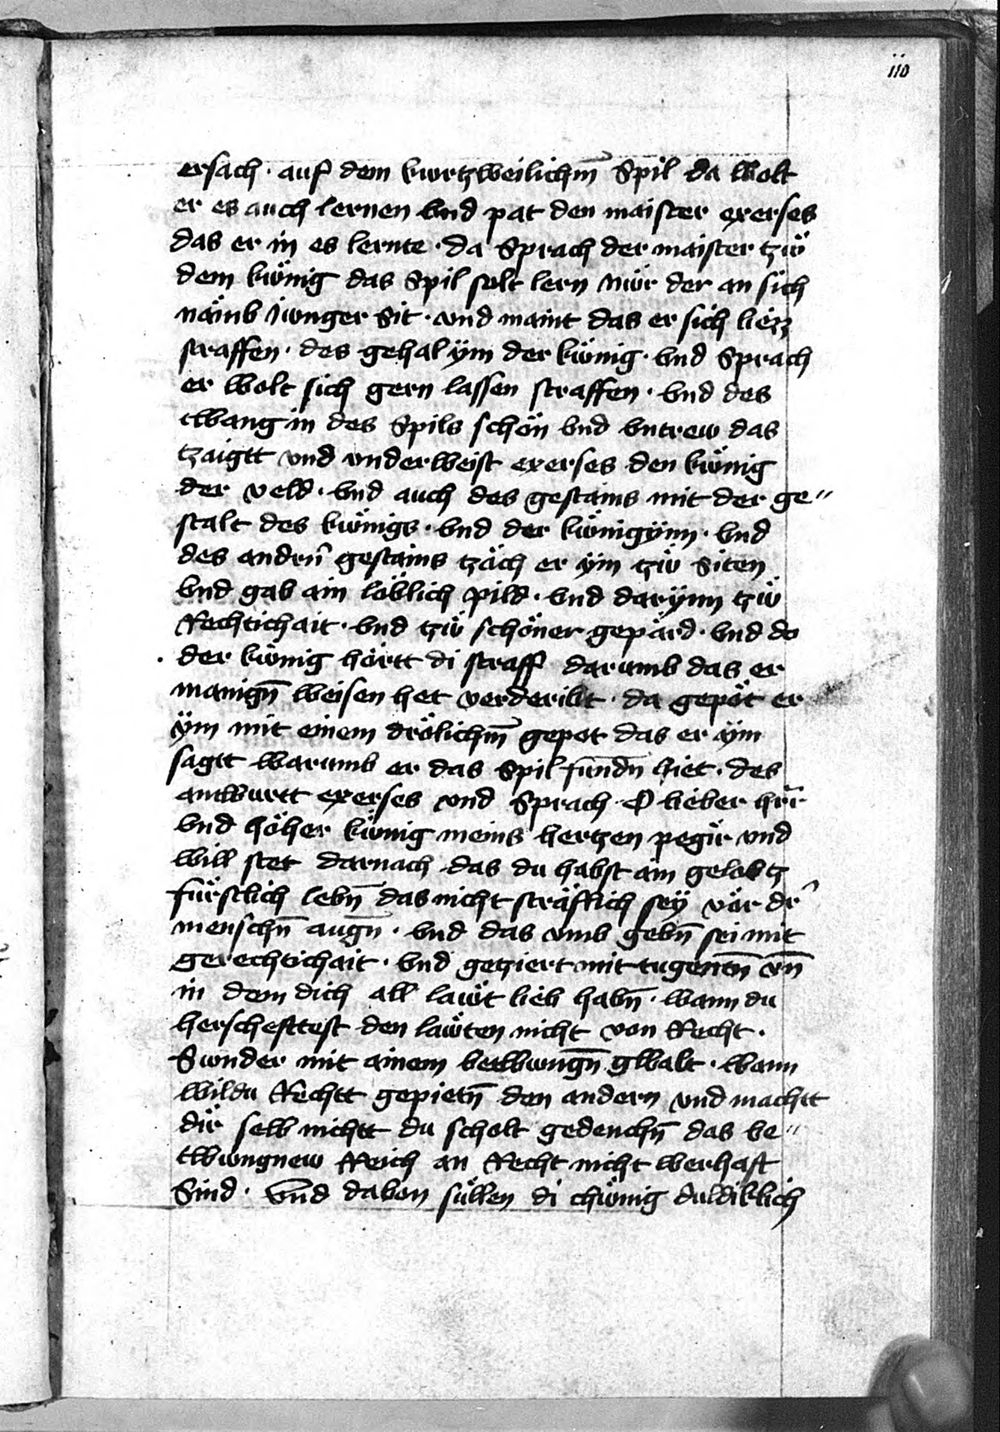 110
ersach · auf dem kurtzweilichm̄ Spil da wolt
er es auch lernen vnd pat den maister exerses
das er in es lernte · da Sprach der maister tzů
dem kůnig das Spil solt lern nůr der an sich
näinb iunger Sit · vnd maint das er sich liezz
straffen · des gehal ÿm der kůnig · vnd Sprach
er wolt sich gern lassen straffen · vnd des
twang in des Spils schön vnd vntrew das
tzaigtt vnd vnderweist exerses den kůnig
der veld · vnd auch des gestains mit der ge〃
stalt des kůnigs · vnd der kůnigÿnn · vnd
des andrn̄ gestains tzäch er ÿm tzů Siten
vnd gab ain löblich pild · vnd darÿnn tzů
Rechtichait · vnd tzů schöner gepärd · vnd do
der kůnig hörtt di straff darumb das er
manign̄ weisen het verderibt · da gepöt er
ÿm mit einem drölichm̄ gepot das er ÿm
sagtt warumb er das Spil fundn̄ hiet · des
antwurtt exerses vnd Sprach · O lieber hr̄r
vnd höher kůnig meins hertzen pegir vnd
will stet darnach das du habst ain gelobtz
fürstlich lebn̄ das nicht sträflich seÿ vör dr̄
menschn̄ augn̄ · vnd das vmb gebn̄ sei mit
gerechtichait · vnd getziert mit tugentn̄ vn̄
in dem dich all lawt lieb habn̄ · wann du
herschefttest den lawten nicht von Recht ·
Sunder mit ainem betwungn̄ gwalt · wann
wildu Rechtt gepietn̄ den andern vnd machtt
dir selb nichtt du scholt gedenchn̄ das be〃
twungnew Reich an Recht nicht werhaft
Sind · vnd dabon süllen di chůnig duldiklich